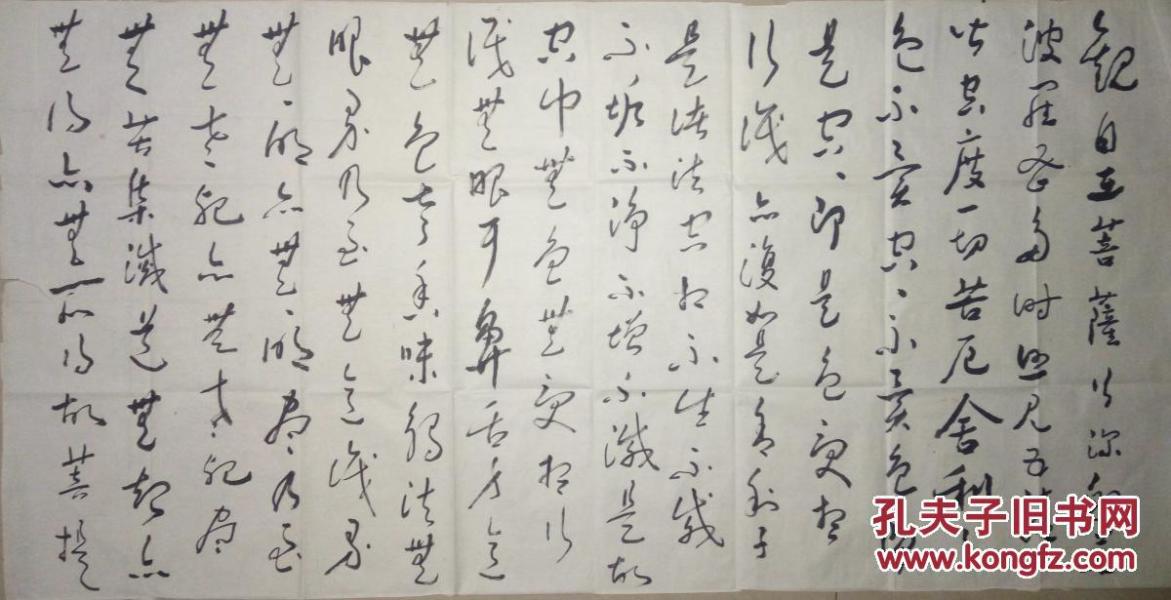 觀自在菩薩行深般
波羅蜜多时照见五蕴
皆空度一切苦厄舍利
色不異空空不異色
是空空即是色受想
行識亦復如是舍利子
是诸法空相不生不滅
不垢不净不增不減是故
空中無色無受想行
識無眼耳鼻舌身意
無色声香味觸法無
眼界乃至無意識界
無無明亦無無明盡乃至
無老死亦無老死盡
無苦集滅道無智亦
無得亦無所得故菩提
孔夫子旧书网
www.kongfz.com